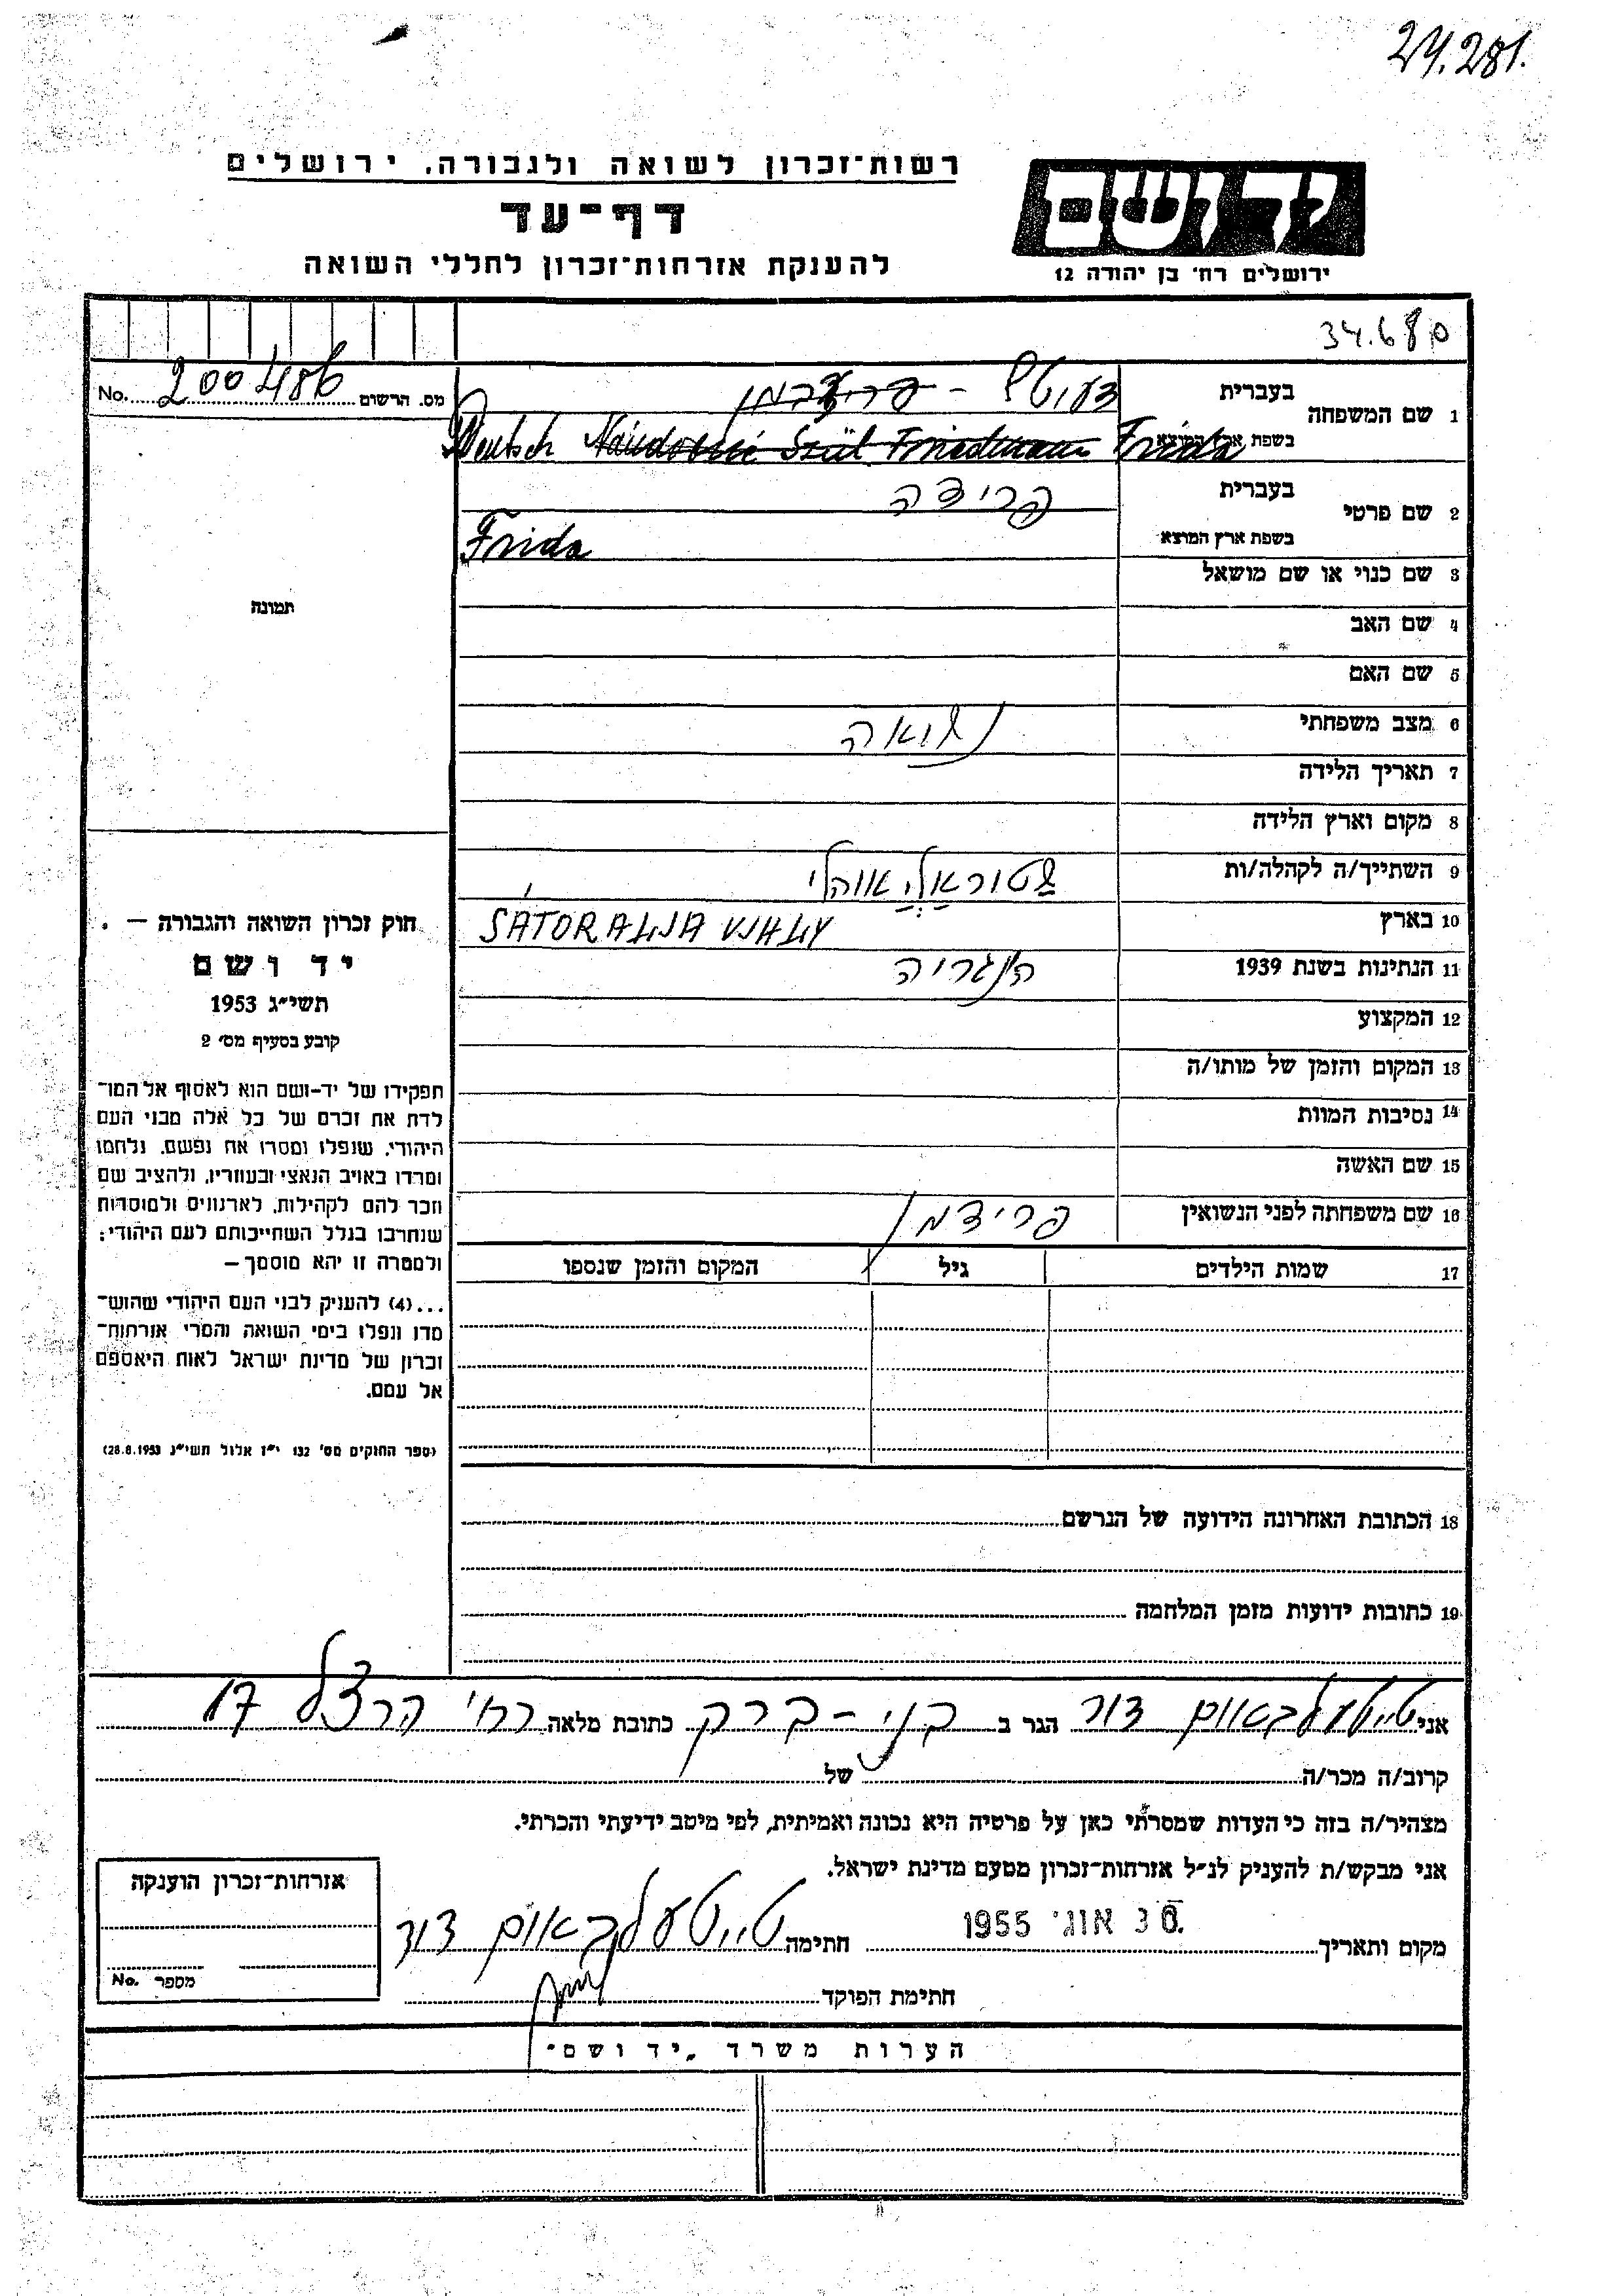 24.281.
רשות־זכרון לשואה ולגבורה, ירושלים
דף־עד
להענקת אזרחות־זכרון לחללי השואה
ידושם
ירושלים רח' בן יהודה 12
34.680
מס. הרשום 200486 No.
1 שם המשפחה
בעברית דעוטש - פרידמן
בשפת ארץ המוצא Deutsch Nándorné Szül Friedmann Frida
2 שם פרטי
בעברית פרידה
בשפת ארץ המוצא Frida
3 שם כנוי או שם מושאל
4 שם האב
5 שם האם
6 מצב משפחתי נשואה
7 תאריך הלידה
8 מקום וארץ הלידה
9 השתייך/ה לקהלה/ות שטוראליאוהלי
10 בארץ SÁTORALJAUJHELY
11 הנתינות בשנת 1939 הונגריה
12 המקצוע
13 המקום והזמן של מותו/ה
14 נסיבות המוות
15 שם האשה
16 שם משפחתה לפני הנשואין פרידמן
17 שמות הילדים גיל המקום והזמן שנספו
18 הכתובת האחרונה הידועה של הנרשם
19 כתובות ידועות מזמן המלחמה
תמונה
חוק זכרון השואה והגבורה —
יד ושם
תשי"ג 1953
קובע בסעיף מס' 2
תפקידו של יד-ושם הוא לאסוף אל המו־
לדת את זכרם של כל אלה מבני העם
היהודי, שנפלו ומסרו את נפשם, נלחמו
ומרדו באויב הנאצי ובעוזריו, ולהציב שם
וזכר להם לקהילות, לארגונים ולמוסדות
שנחרבו בגלל השתייכותם לעם היהודי;
ולמטרה זו יהא מוסמך —
...(4) להעניק לבני העם היהודי שהוש־
מדו ונפלו בימי השואה והמרי אזרחות־
זכרון של מדינת ישראל לאות היאספם
אל עמם.
(ספר החוקים מס' 132 י"ז אלול תשי"ג 28.8.1953)
אני טייטעלבאום דוד הגר ב בני-ברק כתובת מלאה רח' הרצל 17
קרוב/ה מכר/ה של
מצהיר/ה בזה כי העדות שמסרתי כאן על פרטיה היא נכונה ואמיתית, לפי מיטב ידיעתי והכרתי.
אני מבקש/ת להעניק לנ"ל אזרחות־זכרון מטעם מדינת ישראל.
מקום ותאריך 30 אוג' 1955 חתימה טייטעלבאום דוד
חתימת הפוקד
אזרחות־זכרון הוענקה
מספר No.
הערות משרד „יד ושם"